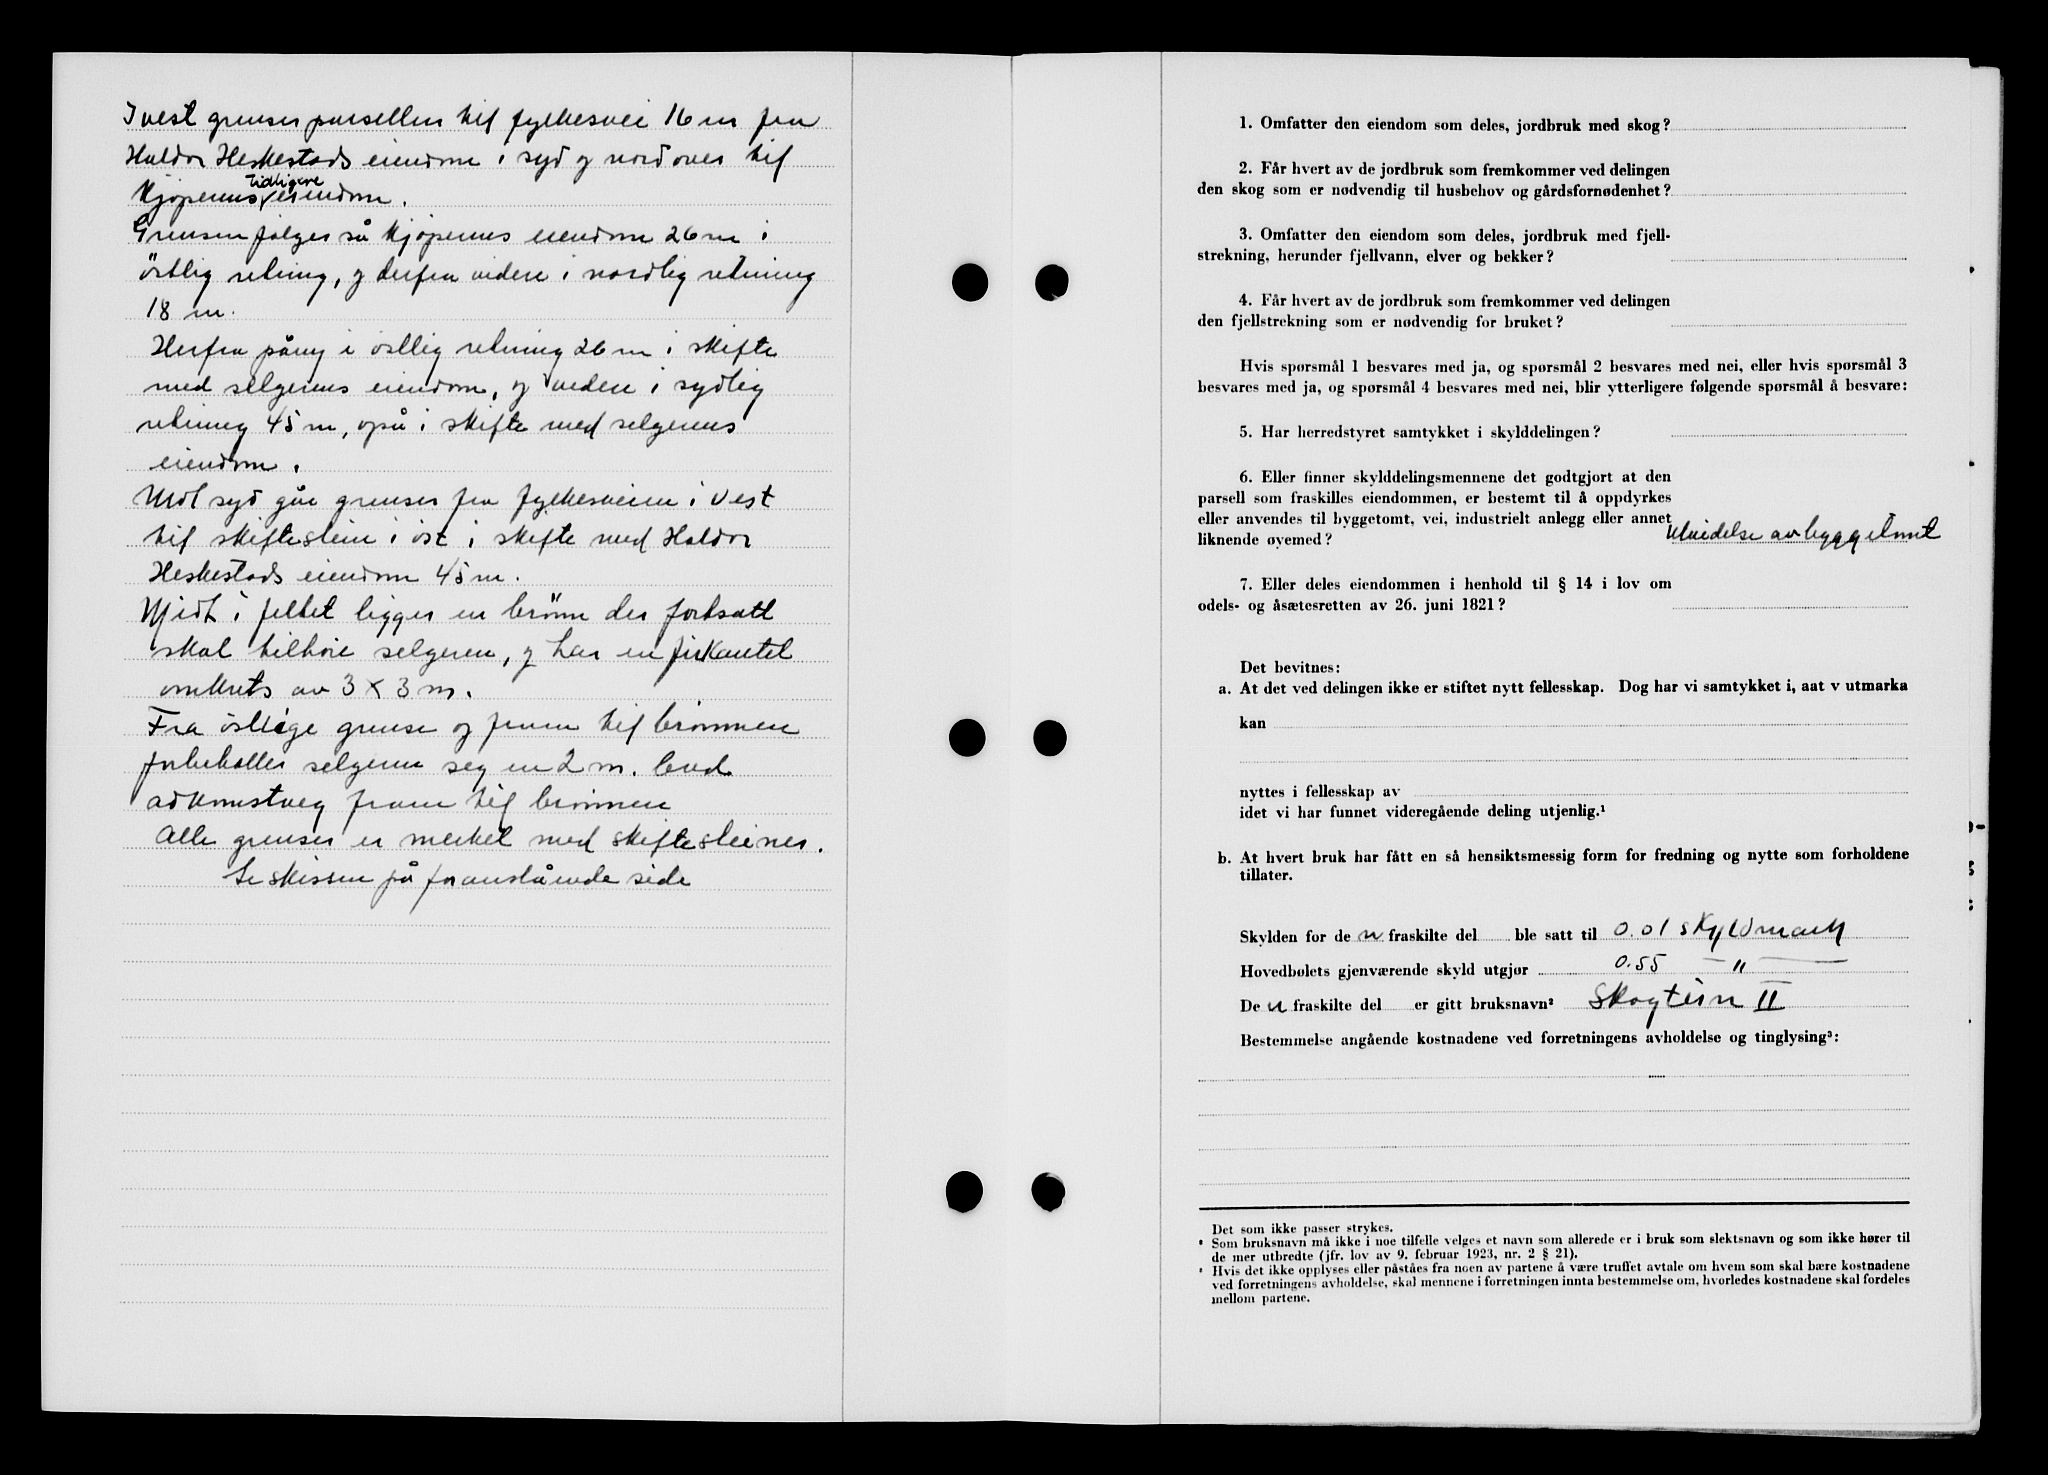 I vest grenser parsellen til fylkesvei 16 m fra
Haldor Heskestads eiendom i syd og nordover til
tidligere
Kjøperens eiendom.
Grensen følger så kjøperens eiendom 26 m i
östlig retning, og derfra videre i nordlig retning
18 m.
Herfra påny i östlig retning 26 m i skifte
med selgerens eiendom, og videre i sydlig
retning 45 m, også i skifte med selgerens
eiendom.
Mot syd går grenser fra fylkesveien i vest
til skiftestein i öst i skifte med Haldor
Heskestads eiendom 45 m.
Midt i feltet ligger en brönn der fortsatt
skal tilhöre selgeren, og har en firkantet
omkrets av 3 x 3 m.
Fra östlige grense og fram til brönnen
forbeholder selgeren seg en 2 m. bred
adkomstveg fram til brönnen
Alle grenser er merket med skiftesteiner.
Se skissen på foranstående side
1. Omfatter den eiendom som deles, jordbruk med skog?
2. Får hvert av de jordbruk som fremkommer ved delingen
den skog som er nødvendig til husbehov og gårdsfornødenhet?
3. Omfatter den eiendom som deles, jordbruk med fjell-
strekning, herunder fjellvann, elver og bekker?
4. Får hvert av de jordbruk som fremkommer ved delingen
den fjellstrekning som er nødvendig for bruket?
Hvis spørsmål 1 besvares med ja, og spørsmål 2 besvares med nei, eller hvis spørsmål 3
besvares med ja, og spørsmål 4 besvares med nei, blir ytterligere følgende spørsmål å besvare:
5. Har herredstyret samtykket i skylddelingen?
6. Eller finner skylddelingsmennene det godtgjort at den
parsell som fraskilles eiendommen, er bestemt til å oppdyrkes
eller anvendes til byggetomt, vei, industrielt anlegg eller annet
liknende øyemed? Utvidelse av byggetomt
7. Eller deles eiendommen i henhold til § 14 i lov om
odels- og åsætesretten av 26. juni 1821?
Det bevitnes:
a. At det ved delingen ikke er stiftet nytt fellesskap. Dog har vi samtykket i, aat v utmarka
kan
nyttes i fellesskap av
idet vi har funnet videregående deling utjenlig.¹
b. At hvert bruk har fått en så hensiktsmessig form for fredning og nytte som forholdene
tillater.
Skylden for de n fraskilte del ble satt til 0.01 skyldmark
Hovedbølets gjenværende skyld utgjør 0.55 — " —
De n fraskilte del er gitt bruksnavn² Skogtun II
Bestemmelse angående kostnadene ved forretningens avholdelse og tinglysing³:
Det som ikke passer strykes.
² Som bruksnavn må ikke i noe tilfelle velges et navn som allerede er i bruk som slektsnavn og som ikke hører til
de mer utbredte (jfr. lov av 9. februar 1923, nr. 2 § 21).
³ Hvis det ikke opplyses eller påståes fra noen av partene å være truffet avtale om hvem som skal bære kostnadene
ved forretningens avholdelse, skal mennene i forretningen innta bestemmelse om, hvorledes kostnadene skal fordeles
mellom partene.